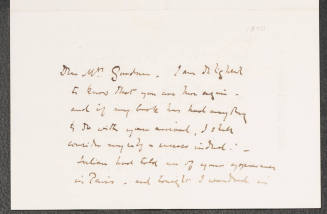 Dear Mrs. Gardner. I am delighted
to know that you are here again -
and if my book has had anything
to do with your arrival, I shall
consider myself a success indeed! -
had told me of your appearance
in Paris - and tonight I wandered in